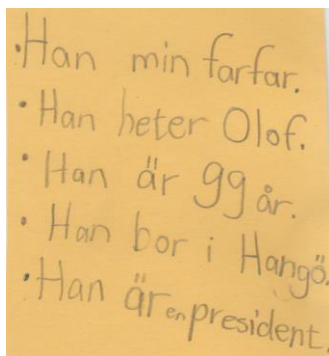 • Han min farfar.
• Han heter Olof.
• Han är 99 år.
• Han bor i Hangö.
• Han är en president.